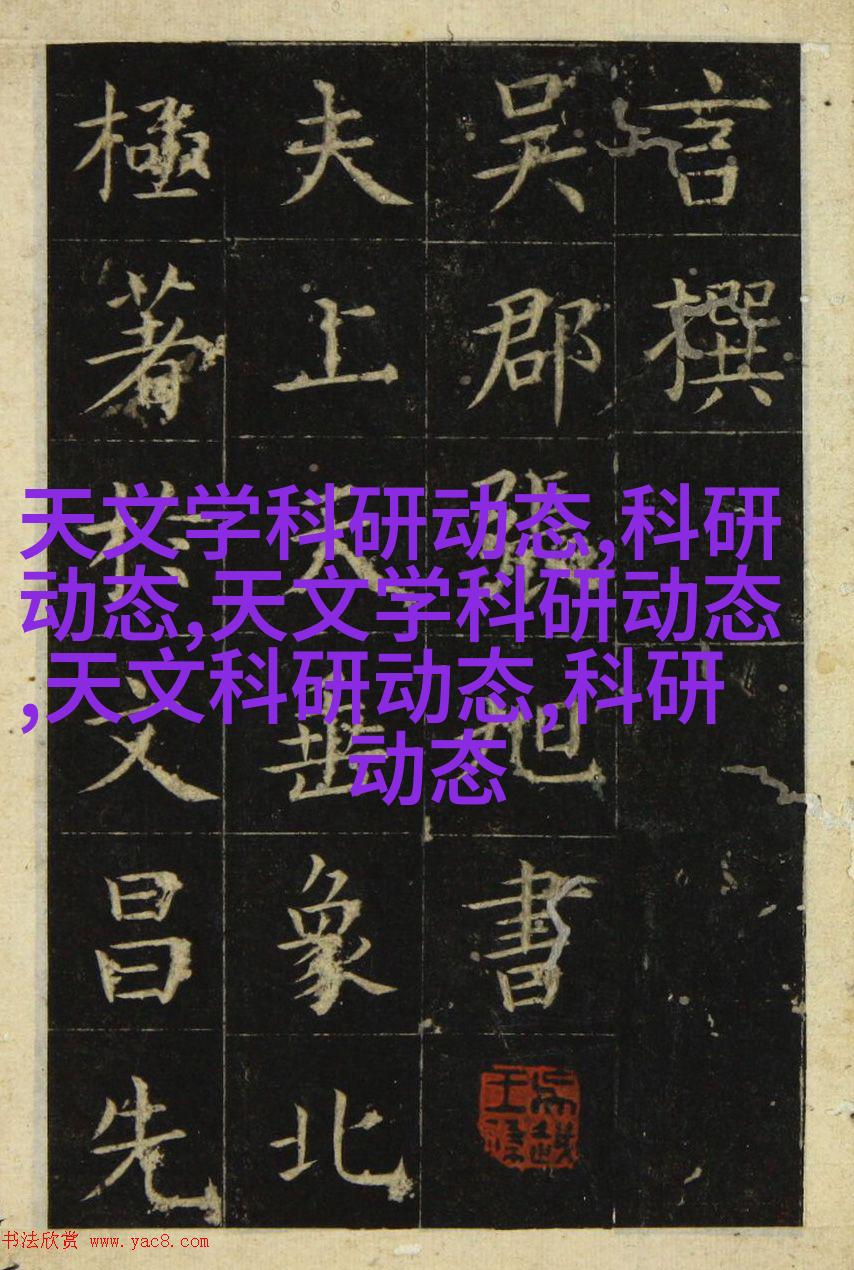 言撰
吳郡張旭書
夫上天垂象北
極著於文昌先
天文学科研动态,科研
动态,天文学科研动态
,天文科研动态,科研
动态
书法欣赏 www.yac8.com